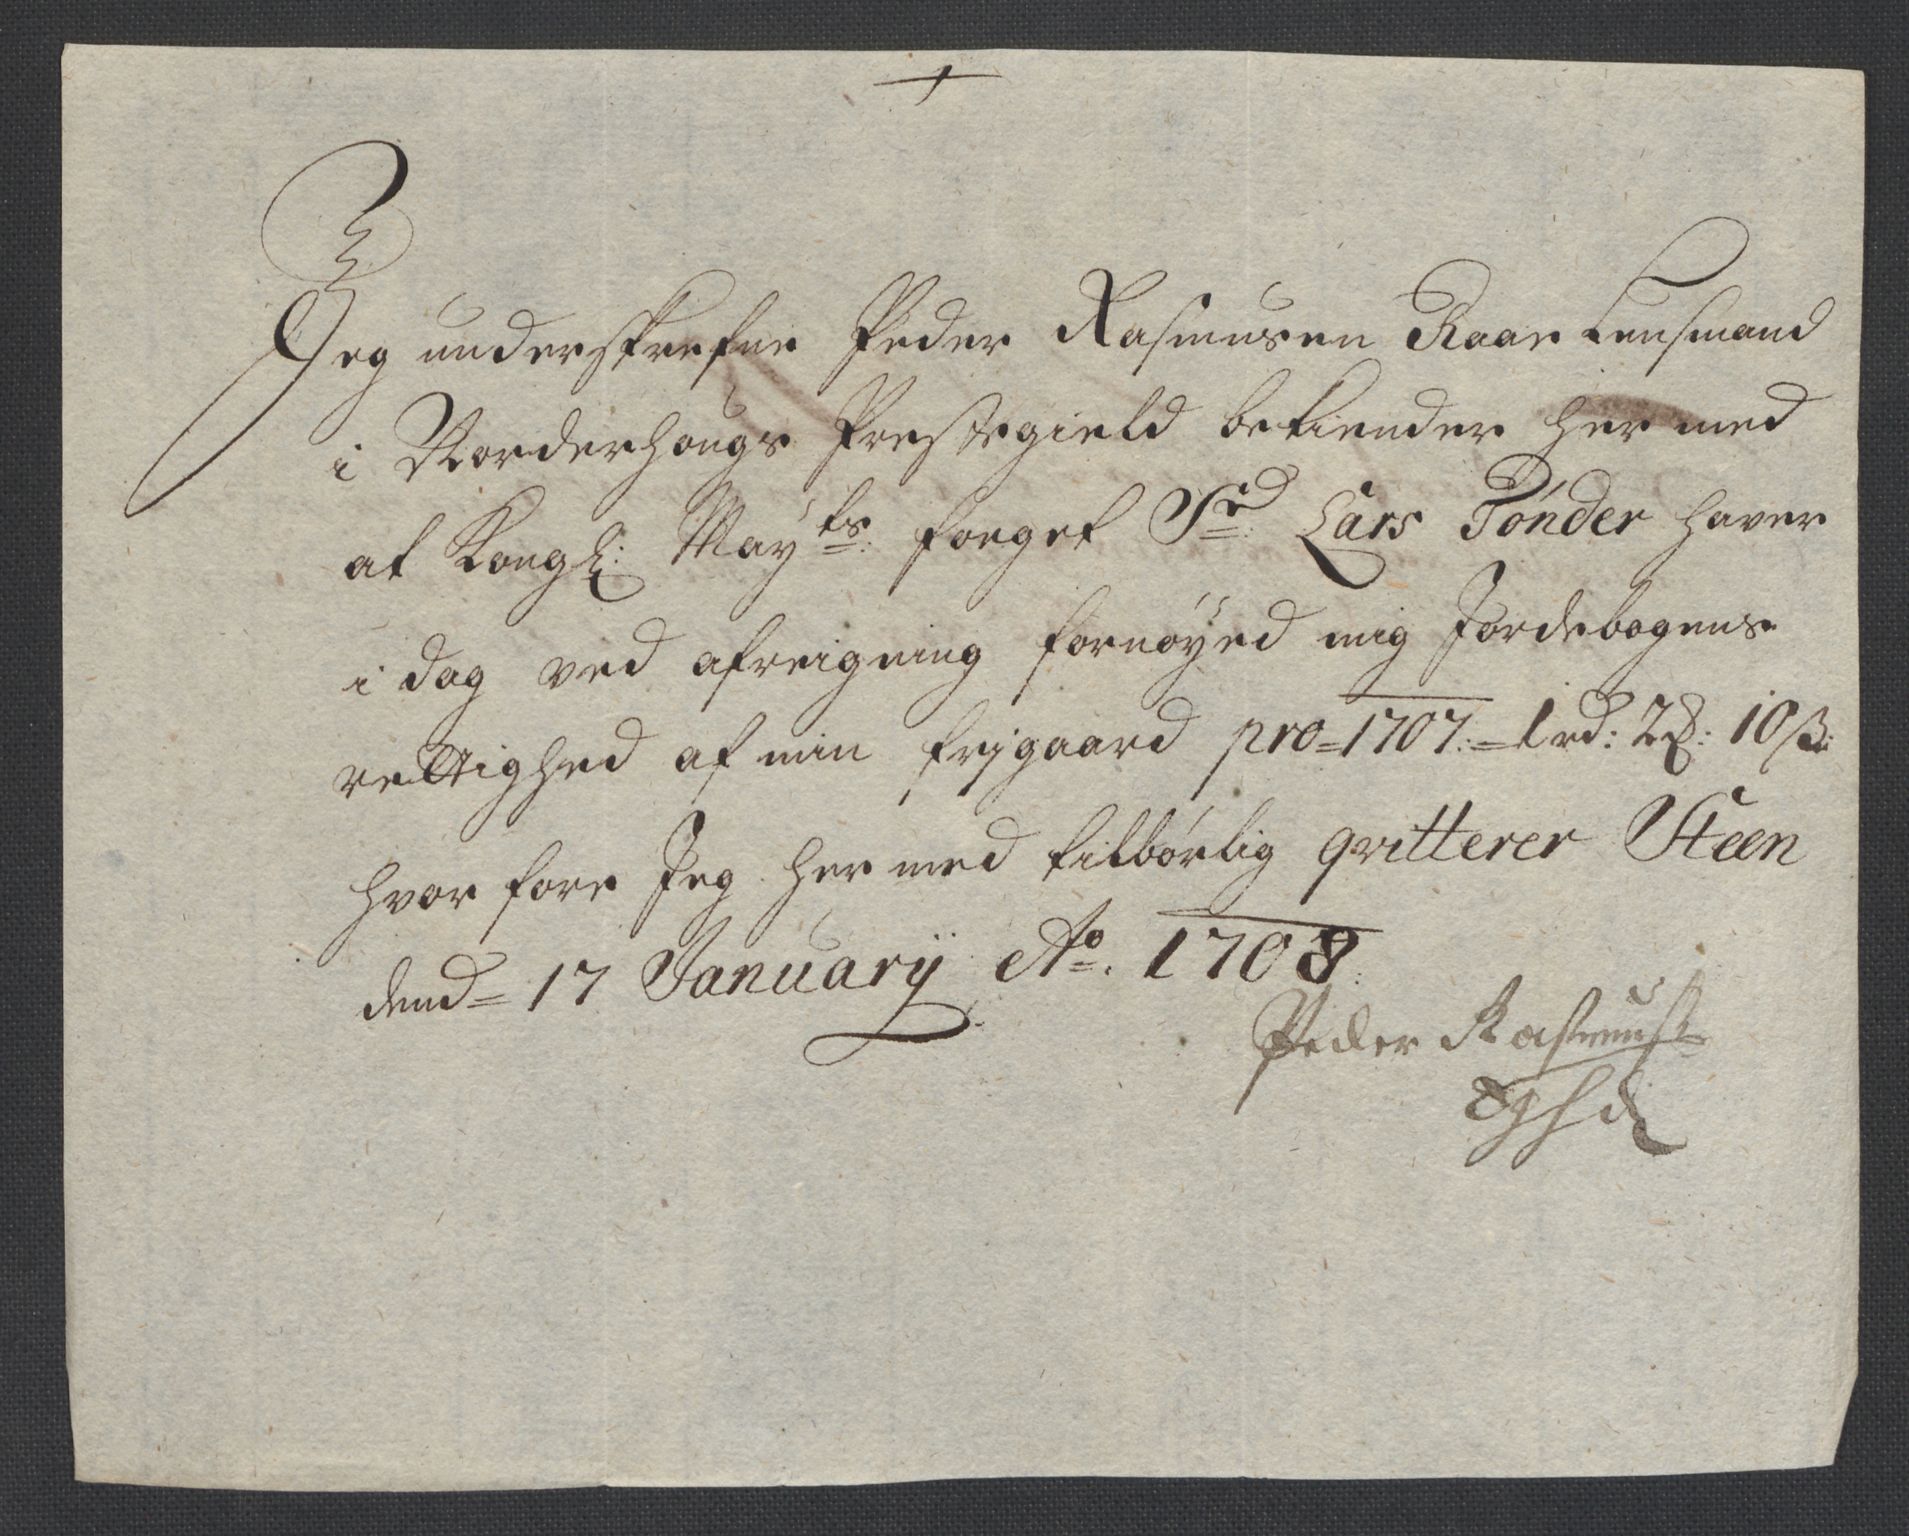 Jeg underskrefne Peder Rasmusen Raae Lensmand
i Norderhougs Prestegield bekiender her med
at Kongl: Mayts: foeget Sr Lars Tønder haver
i dag ved afreigning fornøyed mig Jordebogens
rettighed af min frjgaard pro 1707: 1 rd: 2 ß: 10 ß:
hvor fore Jeg her med tilbørlig qvitterer Steen
dend 17 January Ao. 1708
Peder Rasmus